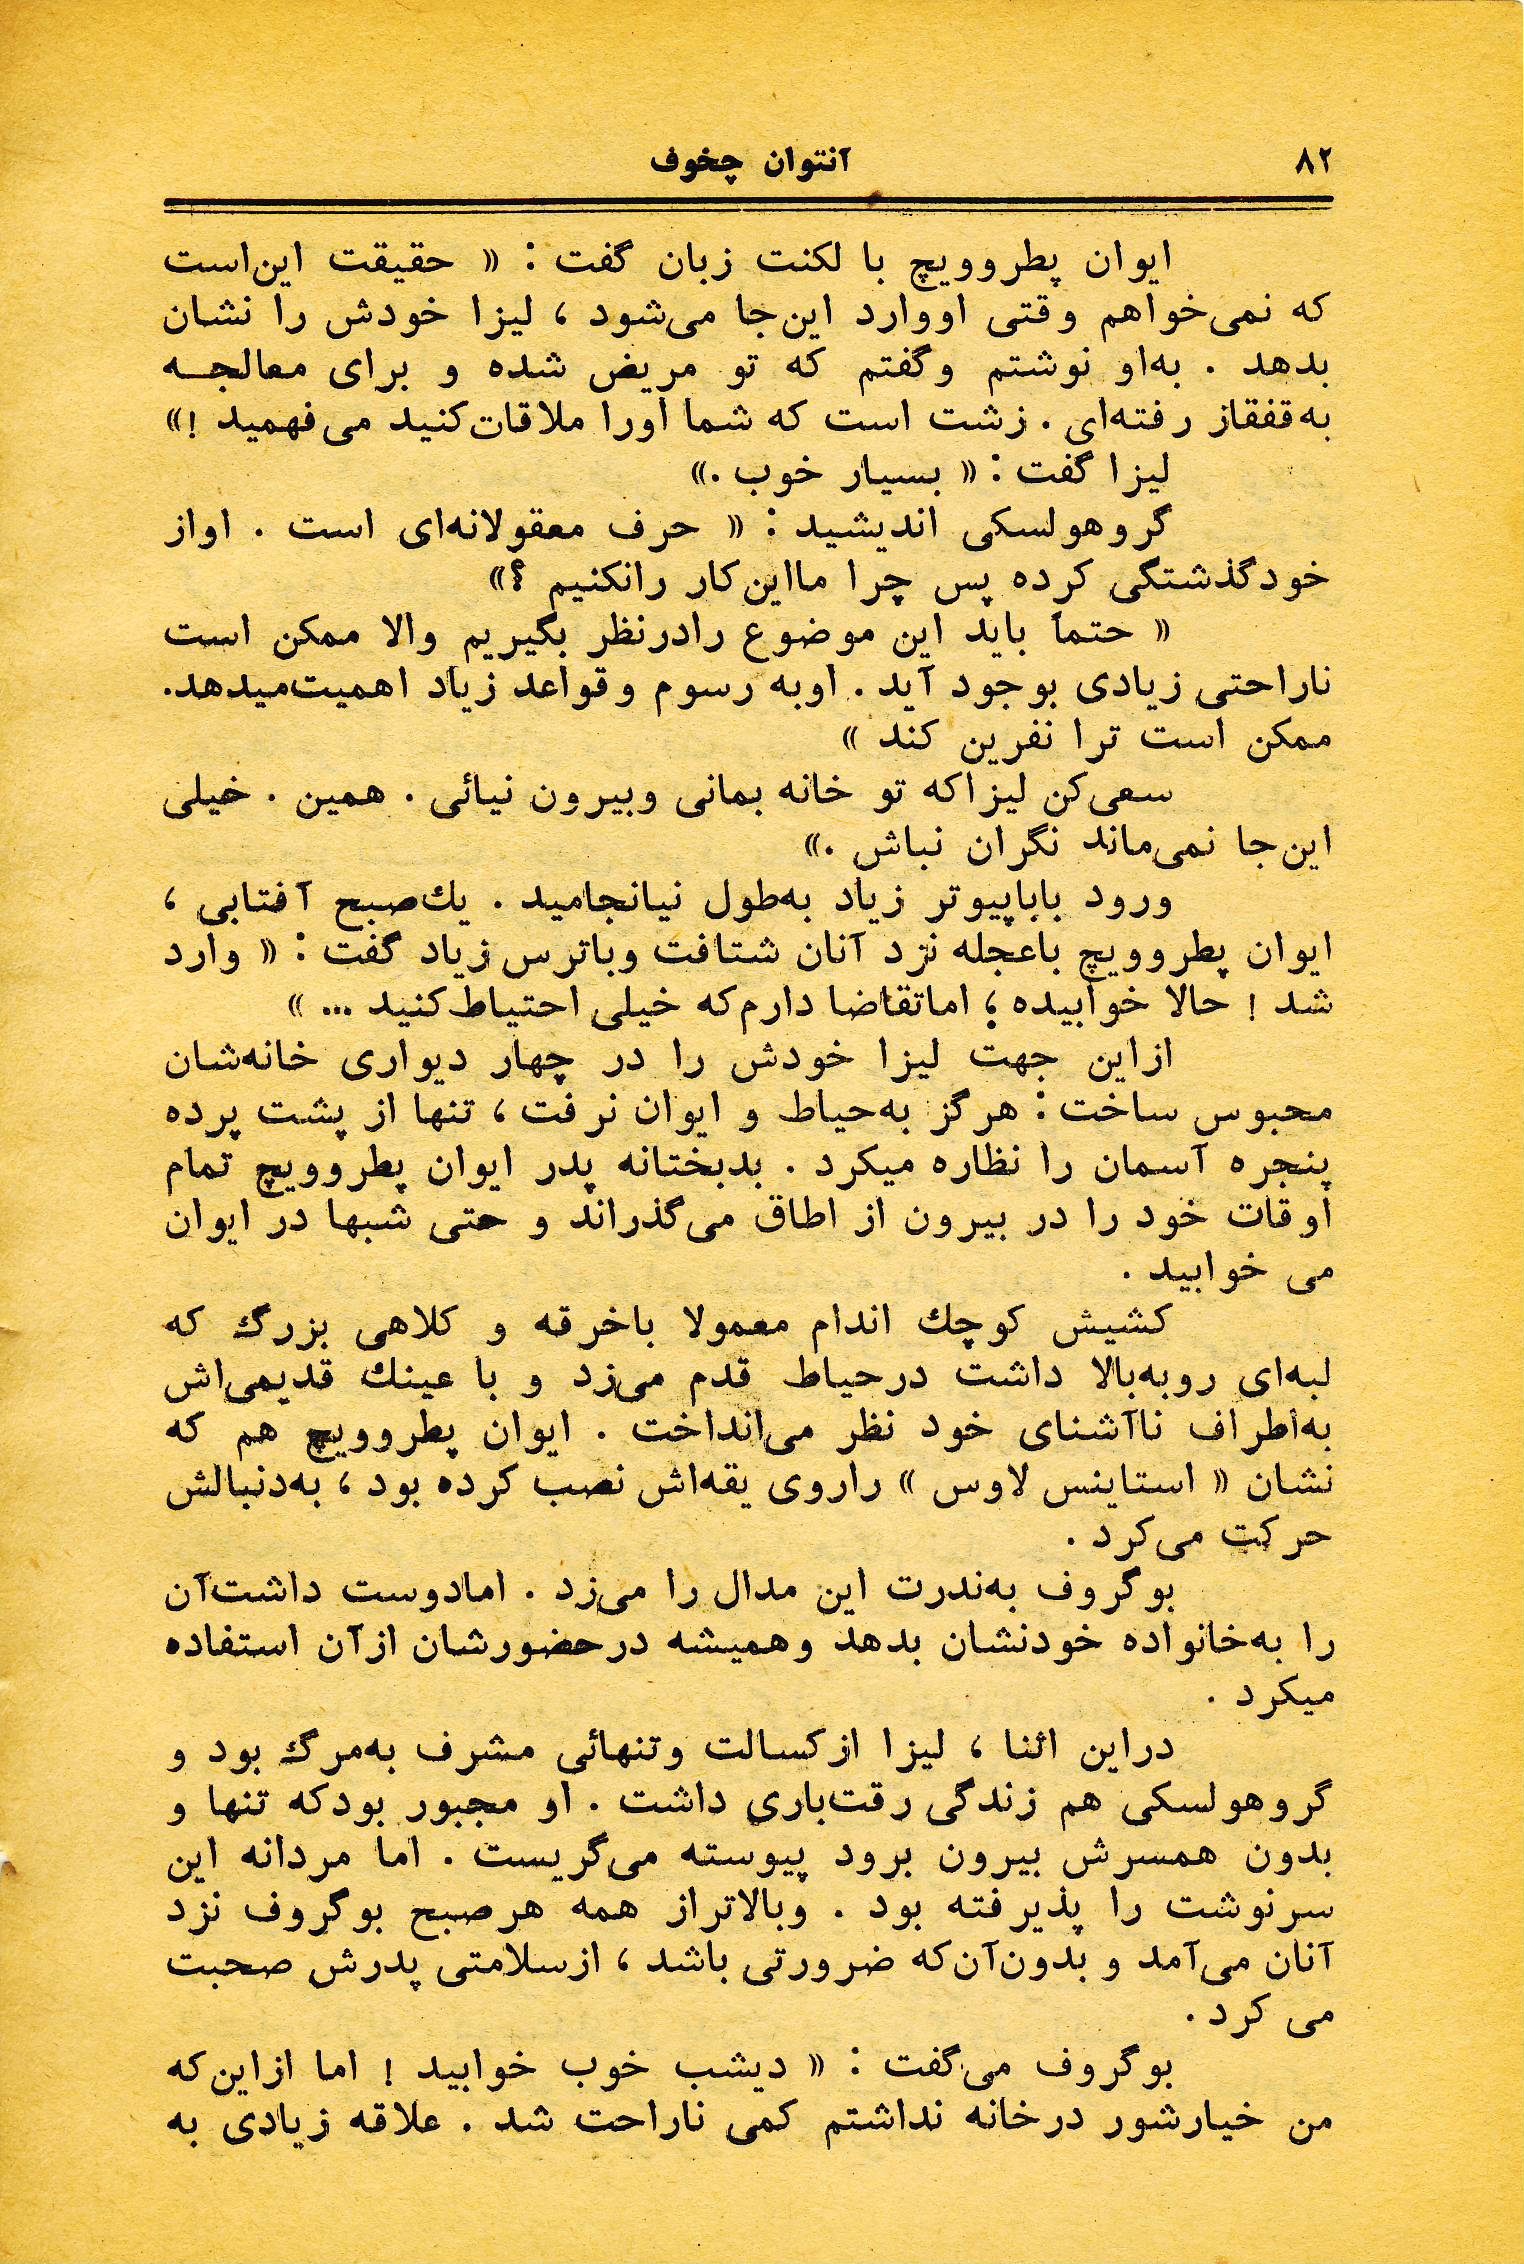 ۸۲
آنتوان چخوف
ایوان پطروویچ با لکنت زبان گفت : « حقیقت این‌است
که نمی‌خواهم وقتی اووارد این‌جا می‌شود ، لیزا خودش را نشان
بدهد . به‌او نوشتم وگفتم که تو مریض شده و برای معالجه
به‌قفقاز رفته‌ای . زشت است که شما اورا ملاقات‌کنید می‌فهمید !»
لیزا گفت : « بسیار خوب .»
گروهولسکی اندیشید : « حرف معقولانه‌ای است . اواز
خودگذشتگی کرده پس چرا مااین‌کار رانکنیم ؟»
« حتماً باید این موضوع رادرنظر بگیریم والا ممکن است
ناراحتی زیادی بوجود آید . اوبه رسوم وقواعد زیاد اهمیت‌میدهد.
ممکن است ترا نفرین کند »
سعی‌کن لیزاکه تو خانه بمانی وبیرون نیائی . همین . خیلی
این‌جا نمی‌ماند نگران نباش .»
ورود باباپیوتر زیاد به‌طول نیانجامید . یك‌صبح آفتابی ،
ایوان پطروویچ باعجله نزد آنان شتافت وباترس زیاد گفت : « وارد
شد ! حالا خوابیده ؛ اماتقاضا دارم‌که خیلی احتیاط‌کنید ... »
ازاین جهت لیزا خودش را در چهار دیواری خانه‌شان
محبوس ساخت : هرگز به‌حیاط و ایوان نرفت ، تنها از پشت پرده
پنجره آسمان را نظاره میکرد . بدبختانه پدر ایوان پطروویچ تمام
اوقات خود را در بیرون از اطاق می‌گذراند و حتی شبها در ایوان
می خوابید .
کشیش کوچك اندام معمولا باخرقه و کلاهی بزرگ که
لبه‌ای روبه‌بالا داشت درحیاط قدم می‌زد و با عینك قدیمی‌اش
به‌اطراف ناآشنای خود نظر می‌انداخت . ایوان پطروویچ هم که
نشان « استاینس لاوس » راروی یقه‌اش نصب کرده بود ، به‌دنبالش
حرکت می‌کرد .
بوگروف به‌ندرت این مدال را می‌زد . امادوست داشت‌آن
را به‌خانواده خودنشان بدهد وهمیشه درحضورشان ازآن استفاده
میکرد .
دراین اثنا ، لیزا ازکسالت وتنهائی مشرف به‌مرگ بود و
گروهولسکی هم زندگی رقت‌باری داشت . او مجبور بودکه تنها و
بدون همسرش بیرون برود پیوسته می‌گریست . اما مردانه این
سرنوشت را پذیرفته بود . وبالاتراز همه هرصبح بوگروف نزد
آنان می‌آمد و بدون‌آن‌که ضرورتی باشد ، ازسلامتی پدرش صحبت
می کرد .
بوگروف می‌گفت : « دیشب خوب خوابید ! اما ازاین‌که
من خیارشور درخانه نداشتم کمی ناراحت شد . علاقه زیادی به